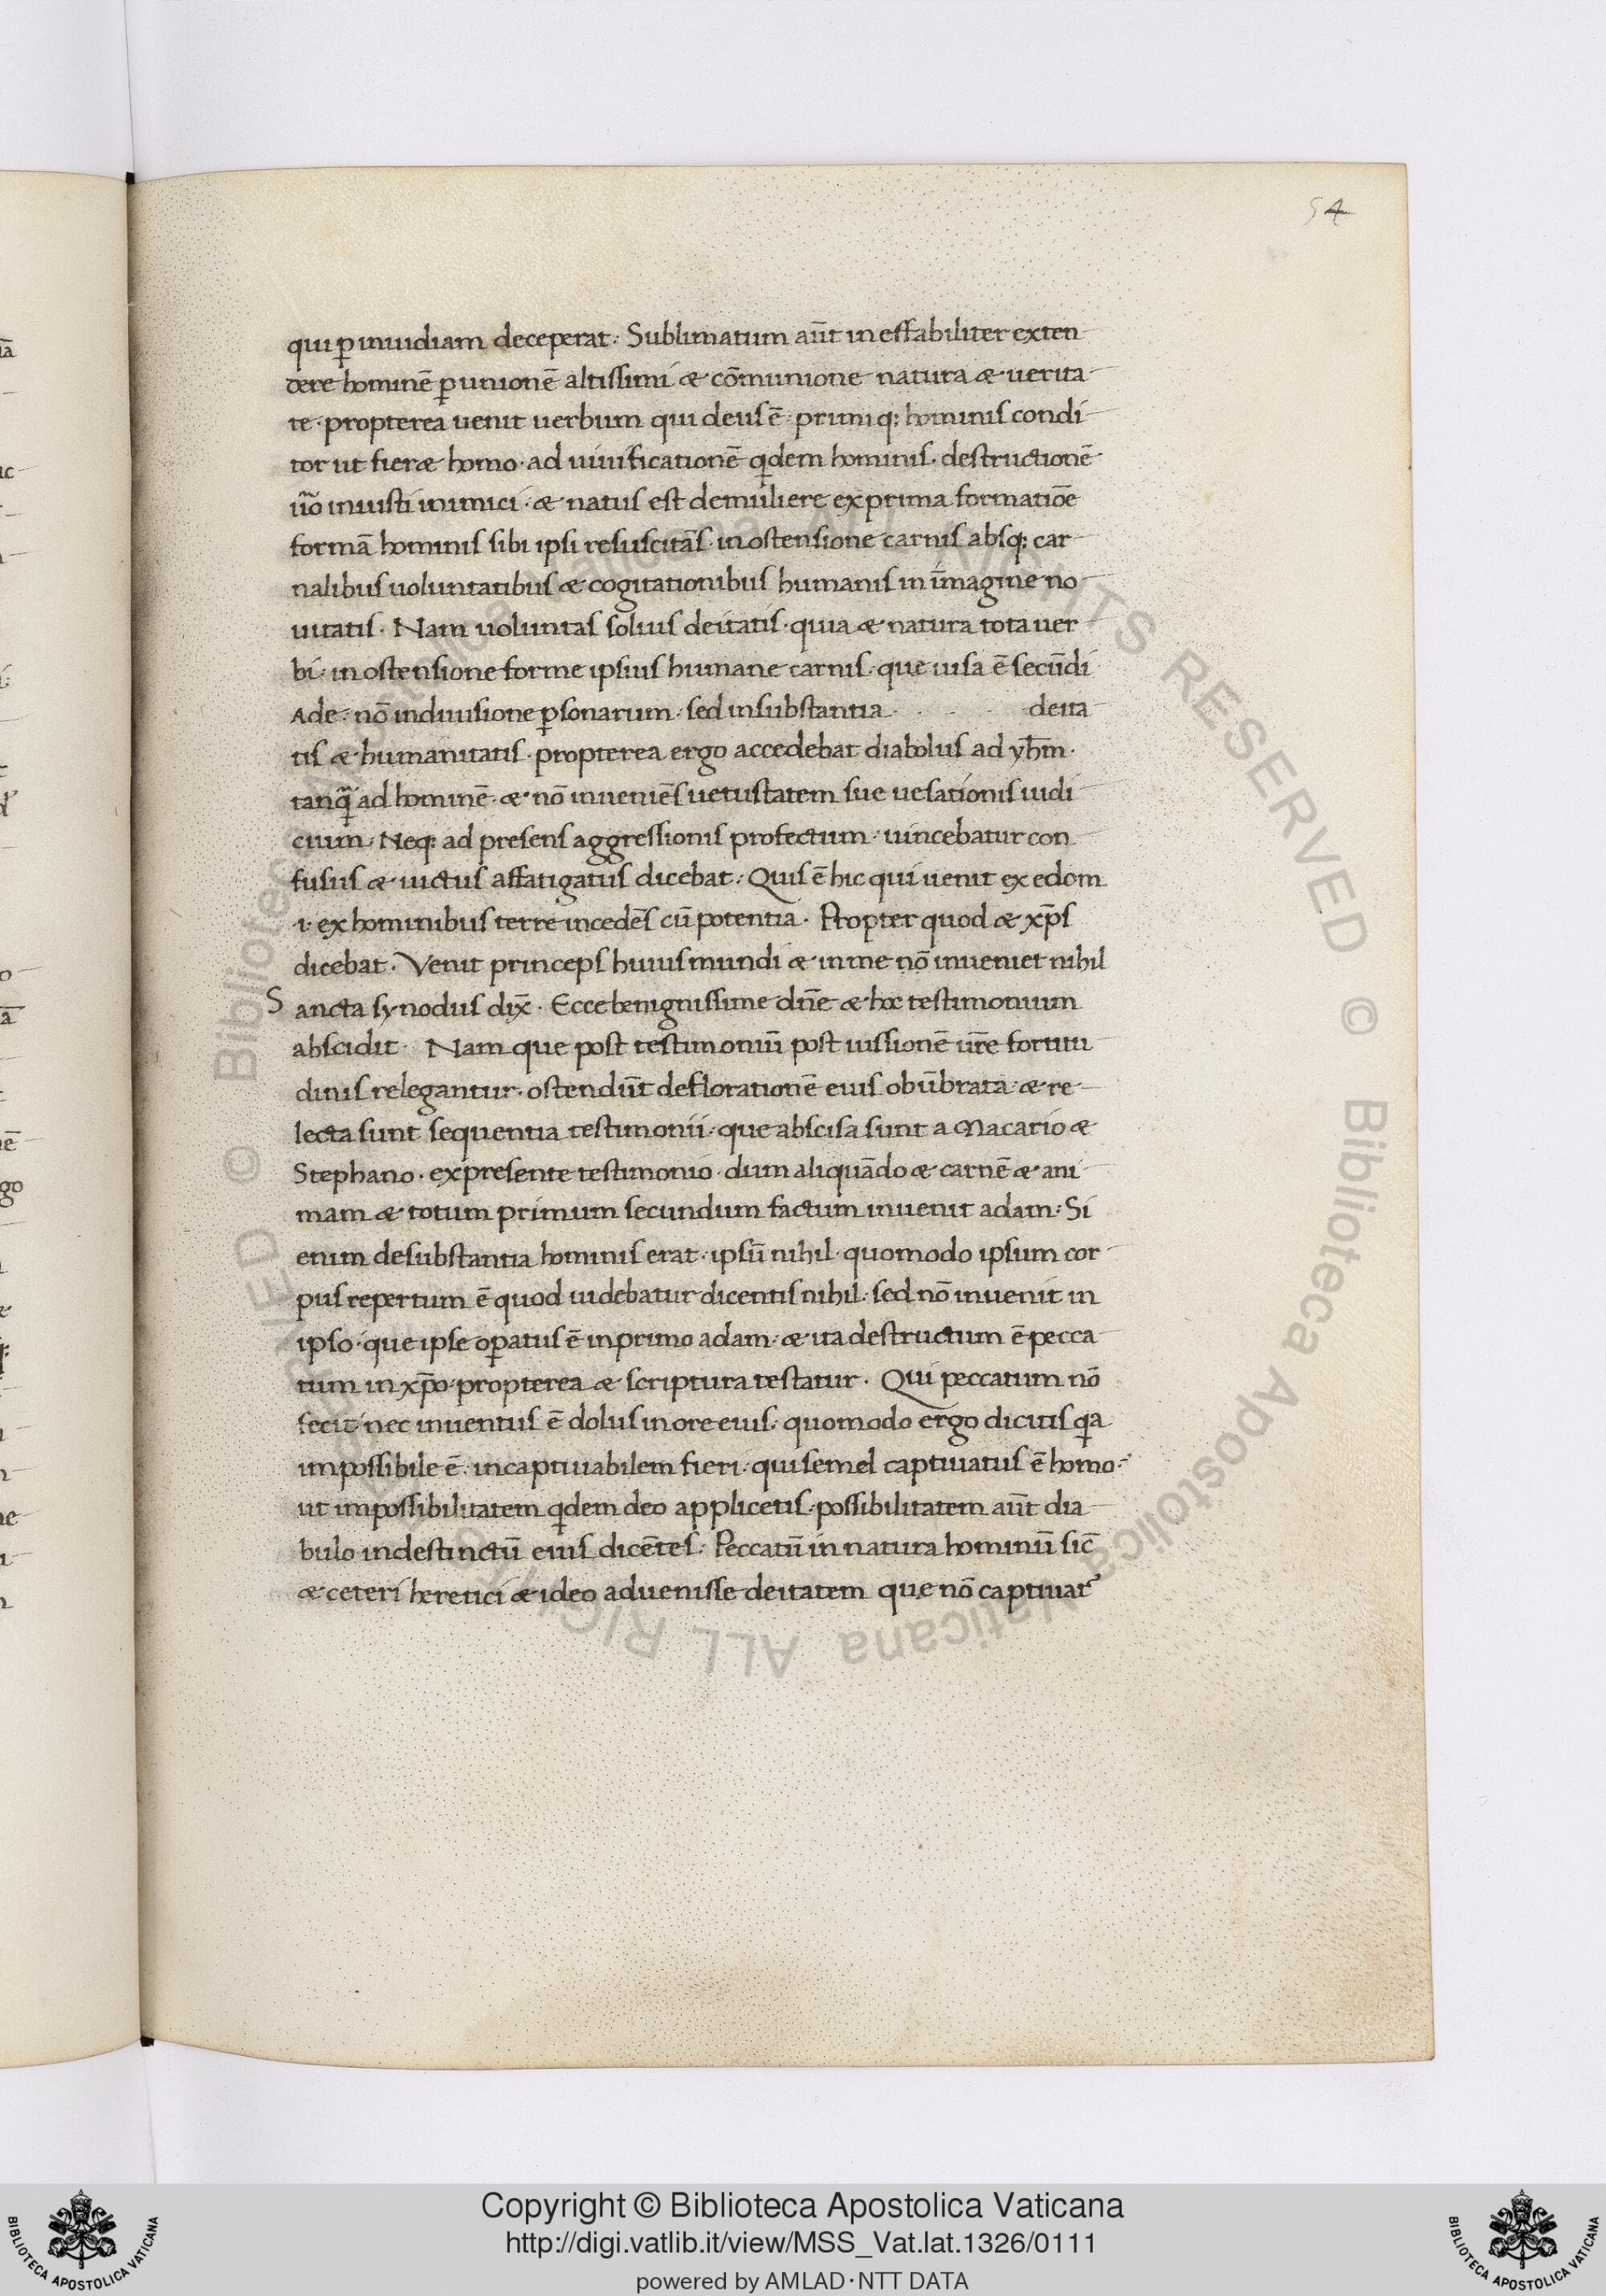 54
qui ꝑ inuidiam deceperat: Sublimatum aūt ineffabiliter exten
dere hominē ꝑ unionē altissimi & cōmunione natura & uerita
te. propterea uenit uerbum qui deus ē. primiq; hominis condi
tor ut fier& homo. ad uiuificationē qͥdem hominis. destructionē
ūo inuisti inimici. & natus est demuliere exprima formatiōe
formā hominis sibi ipsi resuscitās. in ostensione carnis absq; car
nalibus uoluntatibus & cogitationibus humanis in īmagine no
uitatis. Nam uoluntas solius deitatis. quia & natura tota uer
bi. in ostensione forme ipsius humane carnis. que uisa ē secūdi
Ade: nō indiuisione ꝑsonarum. sed insubstantia . . . deita
tis & humanitatis. propterea ergo accedebat diabolus ad yh̄m.
tanqͣ̄ ad hominē. & nō inueniēs uetustatem sue uesationis iudi
cium. Neq; ad presens aggressionis profectum. uincebatur con
fusus & uictus affatigatus dicebat: Quis ē hic qui uenit ex edom
.i. ex hominibus terre incedēs cū potentia. Propter quod & xp̄s
dicebat. Venit princeps huius mundi & in me nō inueniet nihil
Sancta synodus dix̄. Ecce benignissime dn̄e & hoc testimonium
abscidit. Nam que post testimoniū post iussionē ur̄e fortitu
dinis relegantur. ostendūt deflorationē eius obūbrata. & re
lecta sunt sequentia testimonii. que abscisa sunt a Macario &
Stephano. expresente testimonio. dum aliquādo & carnē & ani
mam & totum primum secundum factum inuenit adam: Si
enim desubstantia hominis erat. ipsū nihil. quomodo ipsum cor
pus repertum ē quod uidebatur dicentis nihil. sed nō inuenit in
ipso. que ipse oꝑatus ē inprimo adam. & ita destructum ē pecca
tum in xp̄o. propterea & scriptura testatur. Qui peccatum nō
fecit. nec inuentus ē dolus in ore eius. quomodo ergo dicitis qͥa
impossibile ē. incaptiuabilem fieri. qui semel captiuatus ē homo:
ut impossibilitatem qͥdem deo applicetis. possibilitatem aūt dia
bulo indestinctū eius dicētes. Peccatū in natura hominū sic̄
& ceteri heretici & ideo aduenisse deitatem que nō captiuat᷑
© Biblioteca Apostolica Vaticana ALL RIGHTS RESERVED © Biblioteca Apostolica Vaticana ALL RIGHTS RESERVED
Copyright © Biblioteca Apostolica Vaticana
http://digi.vatlib.it/view/MSS_Vat.lat.1326/0111
powered by AMLAD·NTT DATA
BIBLIOTECA APOSTOLICA VATICANA
BIBLIOTECA APOSTOLICA VATICANA